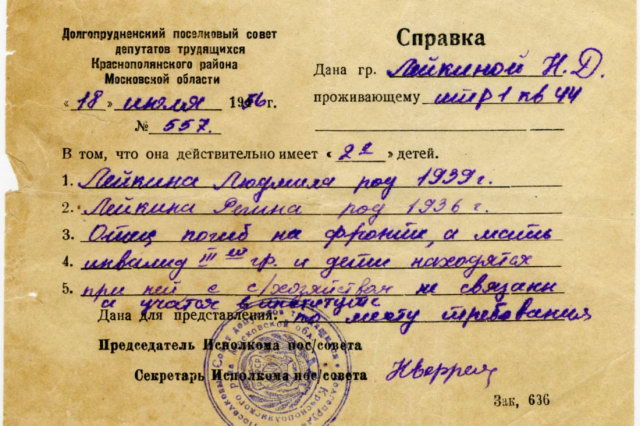 Долгопрудненский поселковый совет
депутатов трудящихся
Краснополянского района
Московской области
« 18 » июля 1956г.
№ 557.
Справка
Дана гр. Лейкиной Н. Д.
проживающему стр 1 кв 44
В том, что она действительно имеет « 2 » детей.
1. Лейкина Людмила род 1939 г.
2. Лейкина Регина род 1936 г.
3. Отец погиб на фронте, а мать
4. инвалид III ей гр. и дети находятся
5. при ней с с/хозяйствам не связаны
а учатся в институте
Дана для представления: по месту требования
Председатель Исполкома пос/совета
Секретарь Исполкома пос/совета
Зак, 636